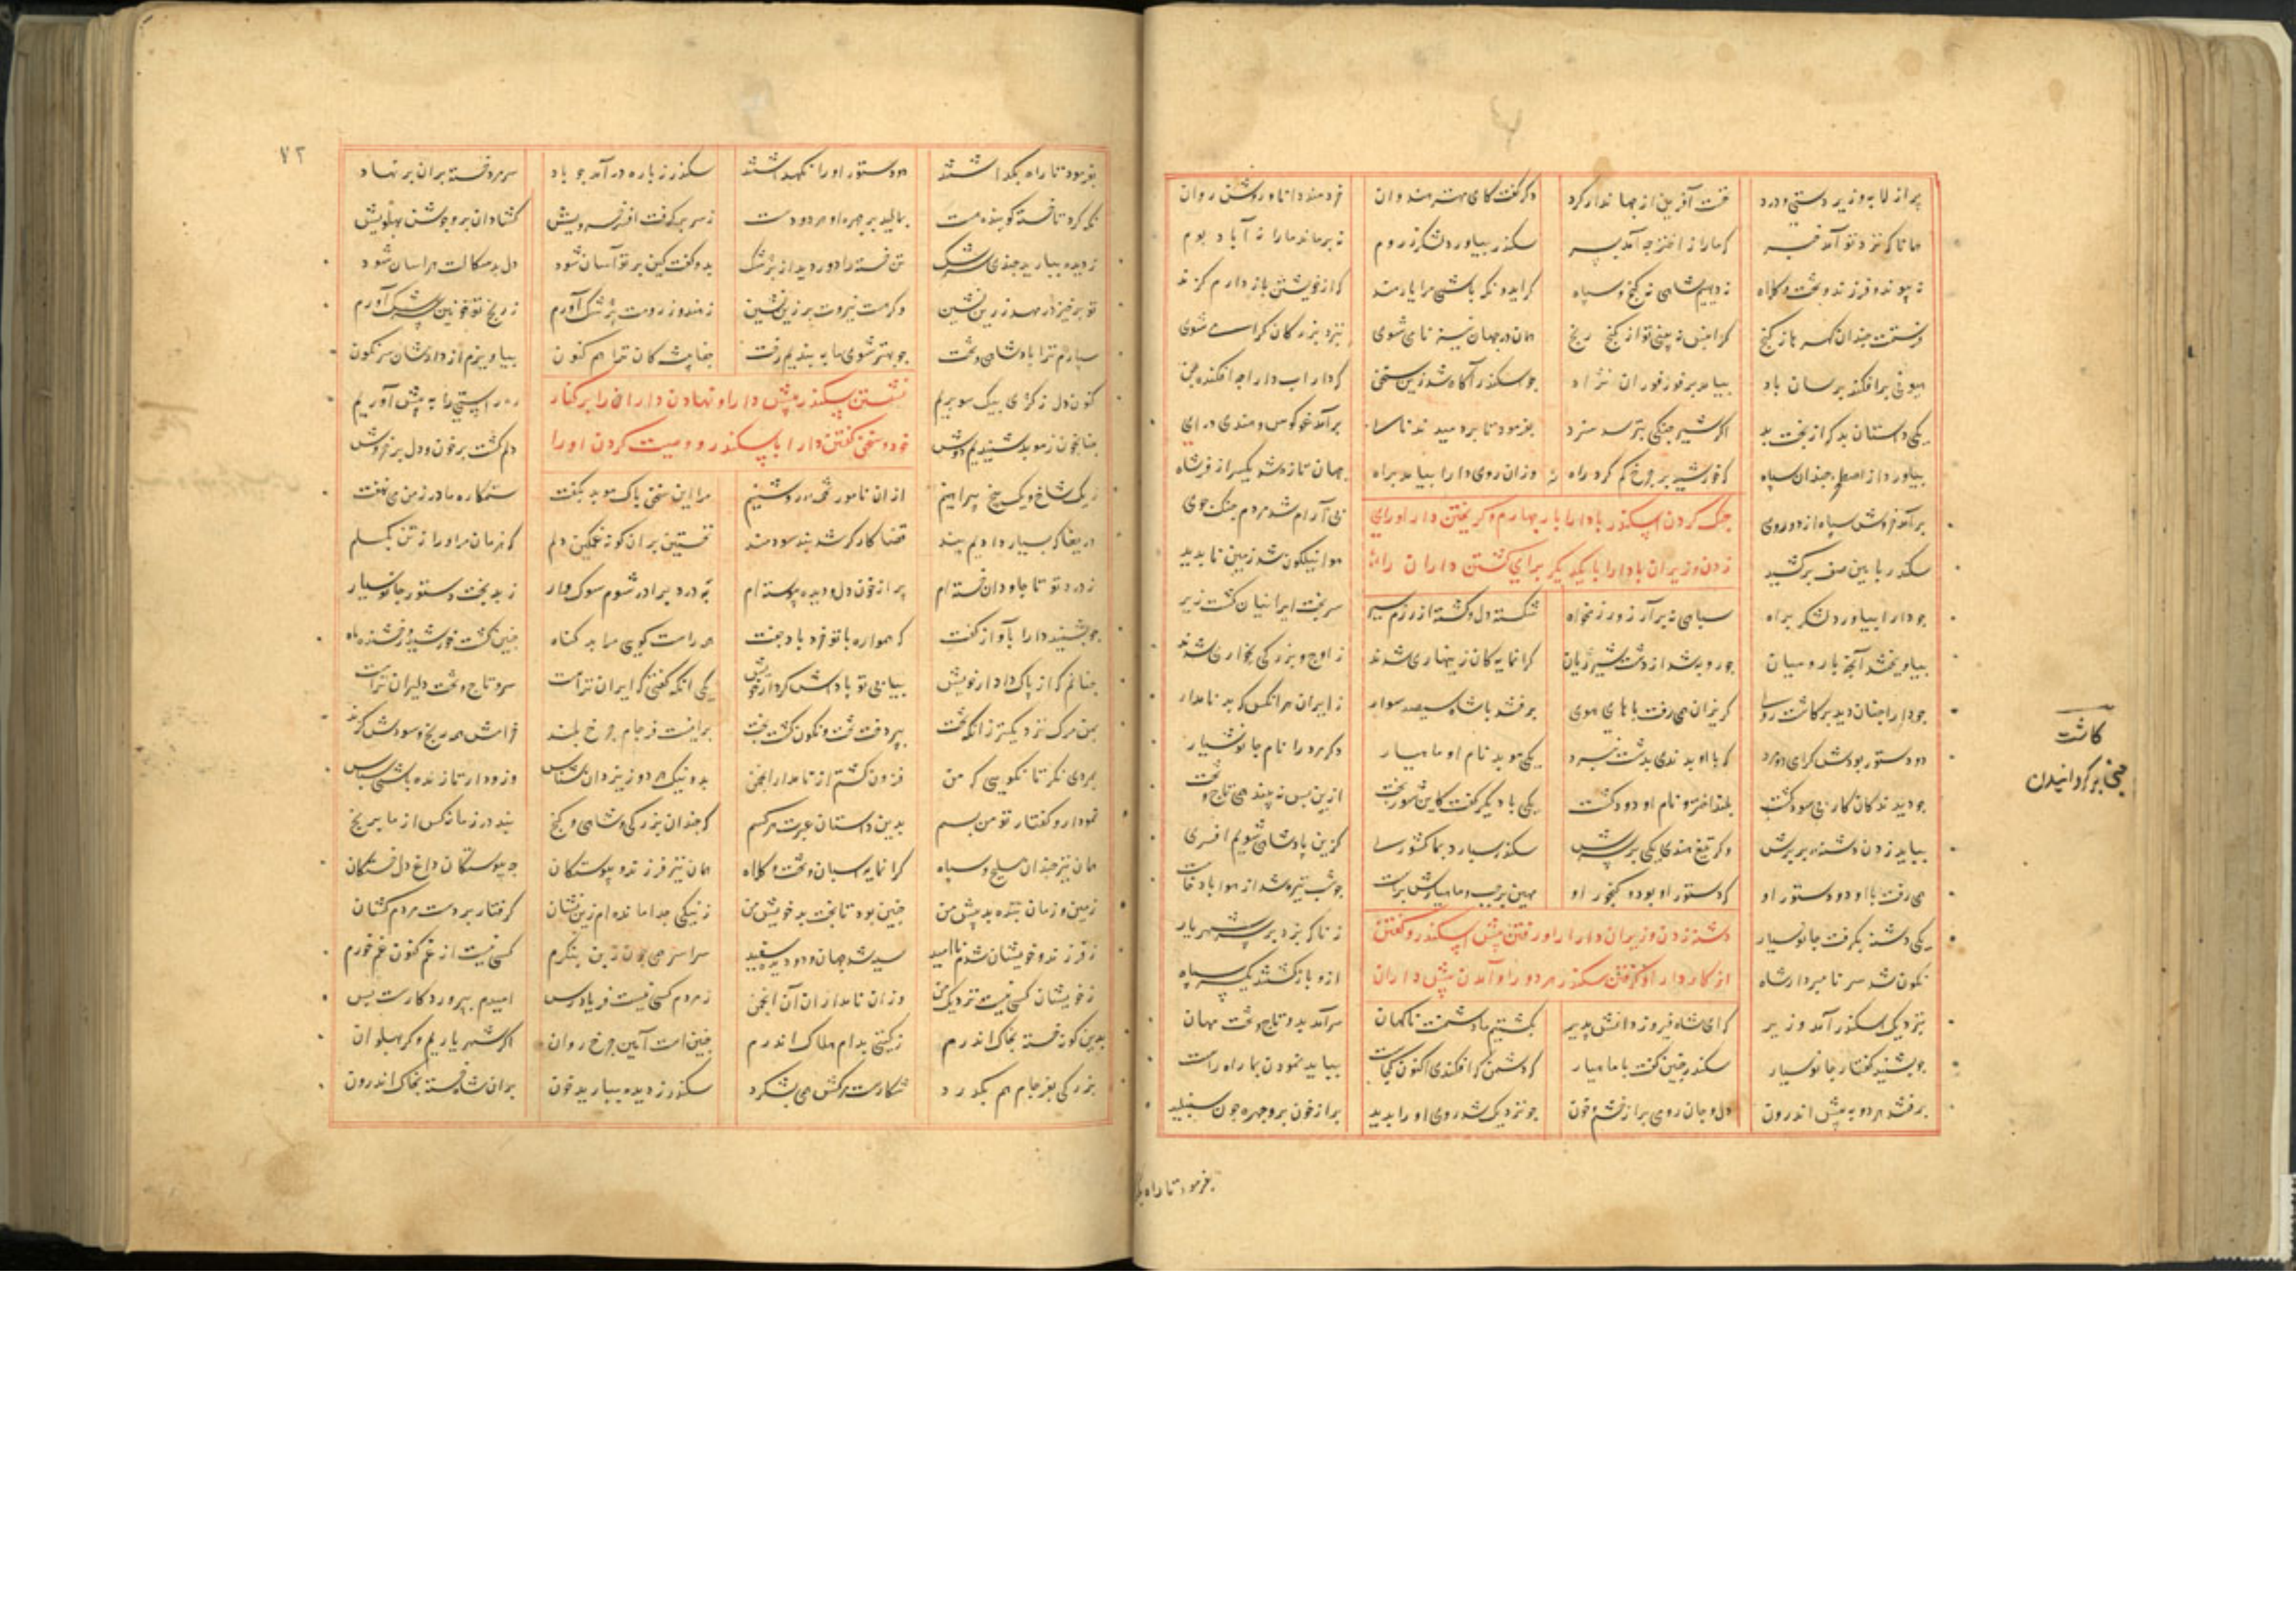 پر از لابه و زیر دستی و درد نخست آفرین از جهاندار کرد دگر گفت کای مهتر هندوان خردمند و دانا و روشن روان
همانا که نزد تو آمد خبر که ما را از اختر چه آمد بسر سکندر بیاورد لشکر ز روم نه بر ماند ما را نه آباد بوم
نه پیوند و فرزند و تخت و کلاه نه دیهیم شاهی نه گنج و سپاه گر ایدونکه باشی مرا یارمند که از خویشتن باز دارم گزند
فرستمت چندان گهرها ز گنج کزان پس نه بینی تو از گنج رنج همان در جهان نیز نامی شوی بنزد بزرگان گرامی شوی
هیونی برافکند برسان باد بیامد بر فور فوران نژاد چو اسکندر آگاه شد زین سخن که داراب دارا چه افکند بن
یکی داستان بد که از بخت بد اگر شیر جنگی بترسد سزد بفرمود تا بر دمیدند نای برآمد غو کوس و هندی درای
بیاورد از اصطخر چندان سپاه که خورشید بر چرخ گم کرد راه وزان روی دارا بیامد براه جهان تازه شد یکسر از فر شاه
برآمد خروش سپاه از دو روی جنگ کردن اسکندر با دارا بار چهارم و گریختن دارا و رای بی آرام شد مردم جنگ جوی
سکندر بآیین صف برکشید زدن وزیران با دارا با یکدیگر برای کشتن داران را هوا نیلگون شد زمین ناپدید
چو دارا بیاورد لشکر براه سپاهی نه بر آرزو رزمخواه شکسته دل و گشته از رزم سیر سر بخت ایرانیان گشت زیر
بیاویخت آنچ با رومیان چو روبه شد از دشت شیر ژیان گرانمایگان زینهاری شدند ز اوج بزرگی بخواری شدند
چو دارا چنان دید برگاشت روی گریزان همی رفت با های هوی برفتند با شاه سیصد سوار ز ایران هر آنکس که بد نامدار
دو دستور بودش گرامی دو مرد که با او بدندی بدشت نبرد یکی موبد نام او ماهیار دگر مرد را نام جانوشیار
چو دیدند کان کار بی سود گشت بلند اختر و نام او دود گشت یکی با دیگر گفت کاین شوربخت ازین پس نه بیند همی تاج و تخت
بباید زدن دشنه بر برش وگر تیغ هندی یکی بر سرش سکندر سپارد بما کشوری گزین پادشاهی شویم افسری
همی رفت با او دو دستور او که دستور او بود و گنجور او مهین بر چپ و ماهیارش براست چو شب تیره شد از هوا باد خاست
یکی دشنه بگرفت جانوسیار دشنه زدن وزیران دارا را و رفتن پیش اسکندر و گفتن زناگه بزد بر بر شهریار
نگون شد سر نامبردار شاه از کار دارا و گرفتن سکندر هر دو را و آمدن پیش داران ازو بازگشتند یکسر سپاه
بنزدیک اسکندر آمد وزیر که ای شاه فیروز دانش پذیر بکشتیم ما دشمنت ناگهان سرآمد بدو تاج و تخت مهان
چو بشنید گفتار جانوسیار سکندر چنین گفت با ماهیار که دشمن که افکندی اکنون کجاست بباید نمودن بما راه راست
برفتند هر دو به پیش اندرون دل و جان رومی پر از خشم و خون چو نزدیک شد روی او را بدید پر از خون بر و چهره چون شنبلید
بفرمود تا راه
کاشت
یعنی برگردانیدن
۷۲
بفرمود تا راه بگذاشتند دو دستور او را نگهداشتند سکندر ز باره درآمد چو باد سر مرد خسته بران بر نهاد
نگه کرد تا خسته گوینده هست بمالید بر چهره او هر دو دست ز سر برگرفت افسر خسرویش گشاد آن بر و جوشن پهلویش
ز دیده ببارید چندی سرشک تن خسته را دور دید از پزشک بدو گفت کین بر تو آسان شود دل بدسگالت هراسان شود
تو برخیز و در مهد زرین نشین وگر هست نیروت بر زین نشین ز هند و ز رومت پزشک آورم ز رنج تو خونین سرشک آورم
سپارم ترا پادشاهی و تخت چو بهتر شوی ما به بندیم رخت جفا پیشگان ترا هم کنون بیاویزم از دارشان سرنگون
کنون دل ز کژی بیک سو بریم نشستن سکندر پیش دارا و نهادن داران را بر کنار همه راستی را به پیش آوریم
چنانچون ز موبد شنیدیم دوش خود و سخن گفتن دارا با سکندر و وصیت کردن او را دلم گشت پر خون و دل پر خروش
ز یک شاخ و یک بیخ پیراهنیم از آن نامور تخمه روشنیم مرا این سخن پاک موبد بگفت ستمکاره مادر ز من می نهفت
دریغا که بسیار دادیم پند قضا کار گر شد نبد سودمند نخستین بران گونه غمگین دلم که فرمان مر او را ز تن بگسلم
ز درد تو تا جاودان خسته‌ام پر از خون دل و دیده پیوسته‌ام به درد برادر شوم سوگوار ز بد بخت دستور جانوسیار
چو بشنید دارا بآواز گفت که همواره با تو خرد باد جفت
چنانم که از پاک دادار خویش بیابی تو پاداش کردار خویش یکی آنکه گفتی که ایران تراست سر و تاج و تخت دلیران تراست
بمن مرگ نزدیکتر زانکه تخت بپردخت تخت و نگون گشت بخت برینست فرجام چرخ بلند خرامش همه رنج و سودش گزند
بمردی نگر تا نگویی که من فزون گشتم از نامدار انجمن بد و نیک هر دو ز یزدان شناس وزو دار تا زنده باشی سپاس
نمودار گفتار تو من بسم بدین داستان عبرت هر کسم که چندان بزرگی و شاهی و گنج نبد در زمانه کس از ما برنج
همان نیز چندان سلیح و سپاه گرانمایه اسپان و تخت و کلاه همان نیز فرزند و پیوستگان چه پیوستگان داغ دل خستگان
زمین و زمان بنده بد پیش من چنین بود تا بخت بد خویش من ز نیکی جدا مانده‌ام زین نشان گرفتار بر دست مردم کشان
ز فرزند و خویشان شدم ناامید سیه شد جهان و دو دیده سفید سراسر همی چون ترین بنگرم کسی نیست از غم کنون غم خورم
ز خویشان کسی نیست نزدیک من وزان نامداران آن انجمن ز مردم کسی نیست فریادرس امیدم بپروردگارست و بس
بدین گونه خسته بخاک اندرم ز گیتی بدام هلاک اندرم چنین است آیین چرخ روان اگر شهریاریم وگر پهلوان
بزرگی بفرجام هم بگذرد شکارست مرگش همی بشکرد سکندر ز دیده ببارید خون بران شاه خسته بخاک اندرون